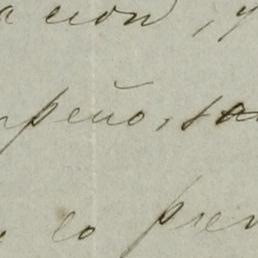 acion, y
mpeño, sa
lo pren